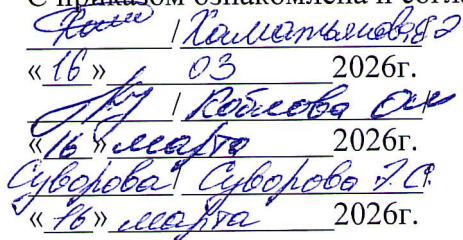 С приказом ознакомлена и согла
/ Хаматьянова
«16» 03 2026г.
/ Коблова
«16» марта 2026г.
Суворова / Суворова Г.С.
«16» марта 2026г.